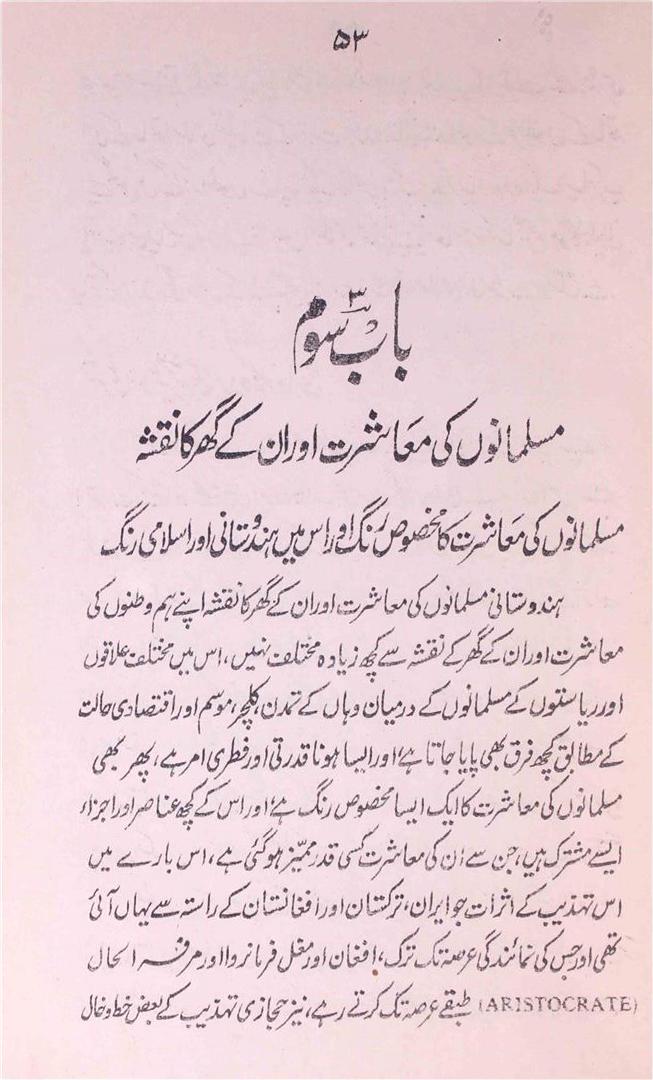 ۵۳
باب سوم ۳
مسلمانوں کی معاشرت اور ان کے گھر کا نقشہ
مسلمانوں کی معاشرت کا مخصوص رنگ اور اس میں ہندوستانی اور اسلامی رنگ
ہندوستانی مسلمانوں کی معاشرت اور ان کے گھر کا نقشہ اپنے ہم وطنوں کی
معاشرت اور ان کے گھر کے نقشہ سے کچھ زیادہ مختلف نہیں، اس میں مختلف علاقوں
اور ریاستوں کے مسلمانوں کے درمیان وہاں کے تمدن، کلچر، موسم اور اقتصادی حالت
کے مطابق کچھ فرق بھی پایا جاتا ہے، اور ایسا ہونا قدرتی اور فطری امر ہے، پھر بھی
مسلمانوں کی معاشرت کا ایک ایسا مخصوص رنگ ہے، اور اس کے کچھ عناصر اور اجزاء
ایسے مشترک ہیں، جن سے ان کی معاشرت کسی قدر ممیّز ہو گئی ہے، اس بارے میں
اس تہذیب کے اثرات جو ایران، ترکستان اور افغانستان کے راستہ سے یہاں آئی
تھی اور جس کی نمائندگی عرصہ تک ترک، افغان اور مغل فرمانروا اور مرفہ الحال
(ARISTOCRATE) طبقے عرصہ تک کرتے رہے، نیز حجازی تہذیب کے بعض خط و خال